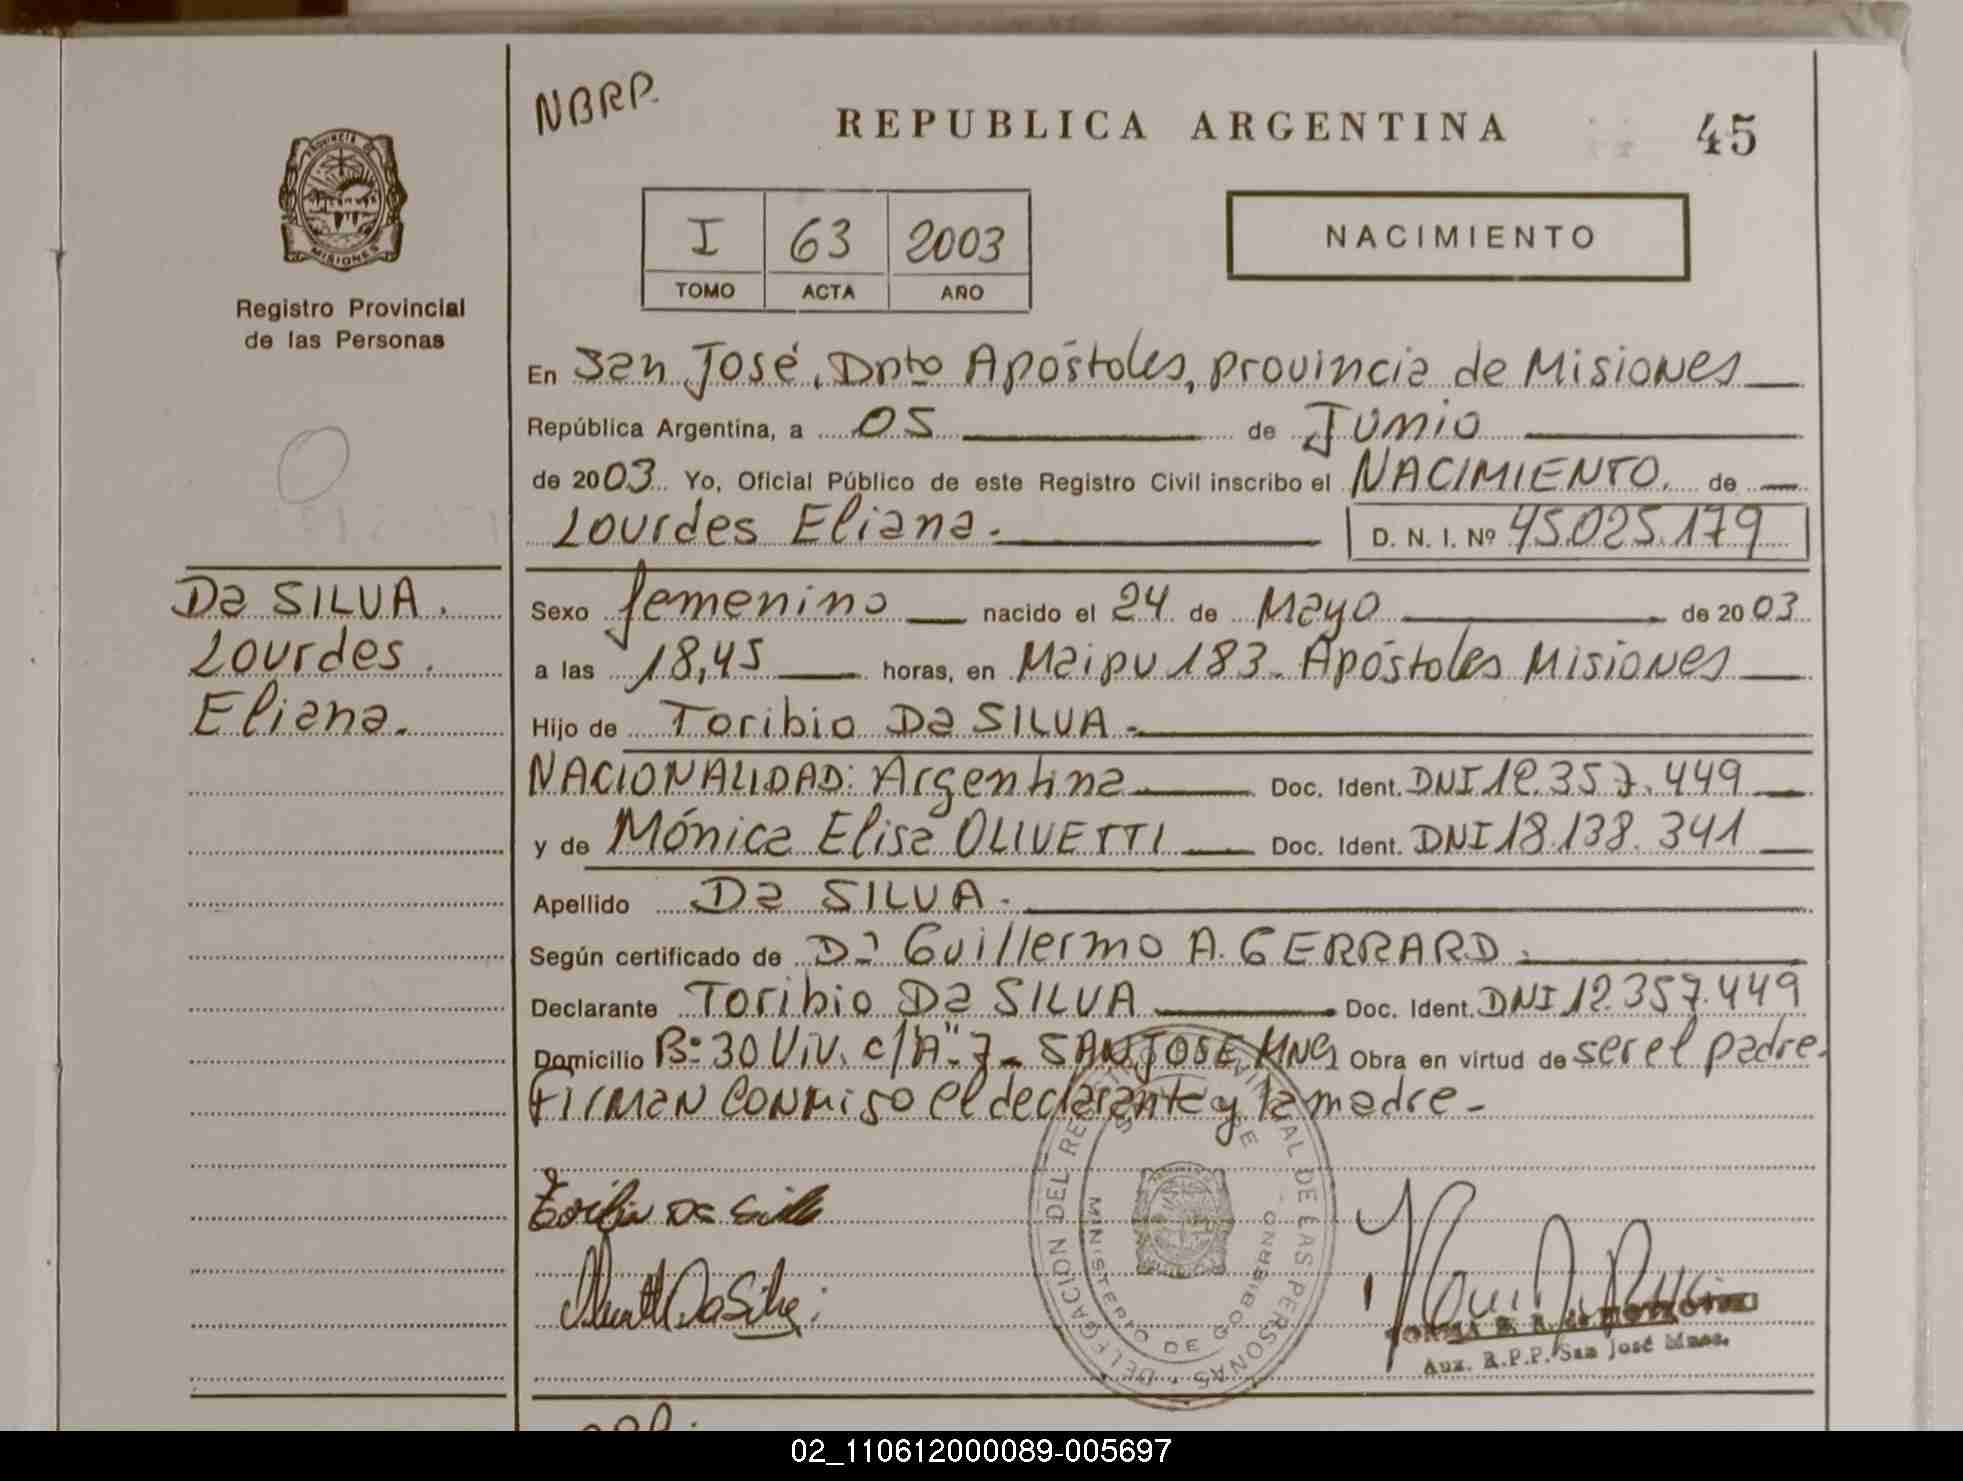 NBRP.
REPUBLICA ARGENTINA
45
PROVINCIA DE
MISIONES
Registro Provincial
de las Personas
I 63 2003
TOMO ACTA AÑO
NACIMIENTO
En San José, Dpto Apóstoles, provincia de Misiones
República Argentina, a 05 de Junio
de 2003 Yo, Oficial Público de este Registro Civil inscribo el NACIMIENTO. de
Lourdes Eliana.
D. N. I. Nº 45.025.179
Da SILVA.
Lourdes.
Eliana.
Sexo femenino nacido el 24 de Mayo de 2003
a las 18,45 horas, en Maipu 183 - Apóstoles Misiones
Hijo de Toribio Da SILVA.
NACIONALIDAD: Argentina Doc. Ident. DNI 12.357.449
y de Mónica Elisa OLIVETTI Doc. Ident. DNI 18.138.341
Apellido Da SILVA.
Según certificado de Dr Guillermo A. GERRARD.
Declarante Toribio Da SILVA Doc. Ident. DNI 12.357.449
Domicilio Bº 30 Viv. c/"A"-7- SAN JOSE Mnes Obra en virtud de ser el padre.
Firman conmigo el declarante y la madre-
Toribio Da Silva
Da Silva
DELEGACION DEL REGISTRO PROVINCIAL DE LAS PERSONAS
MINISTERIO DE GOBIERNO
Aux. R.P.P. San José Mnes.
02_110612000089-005697